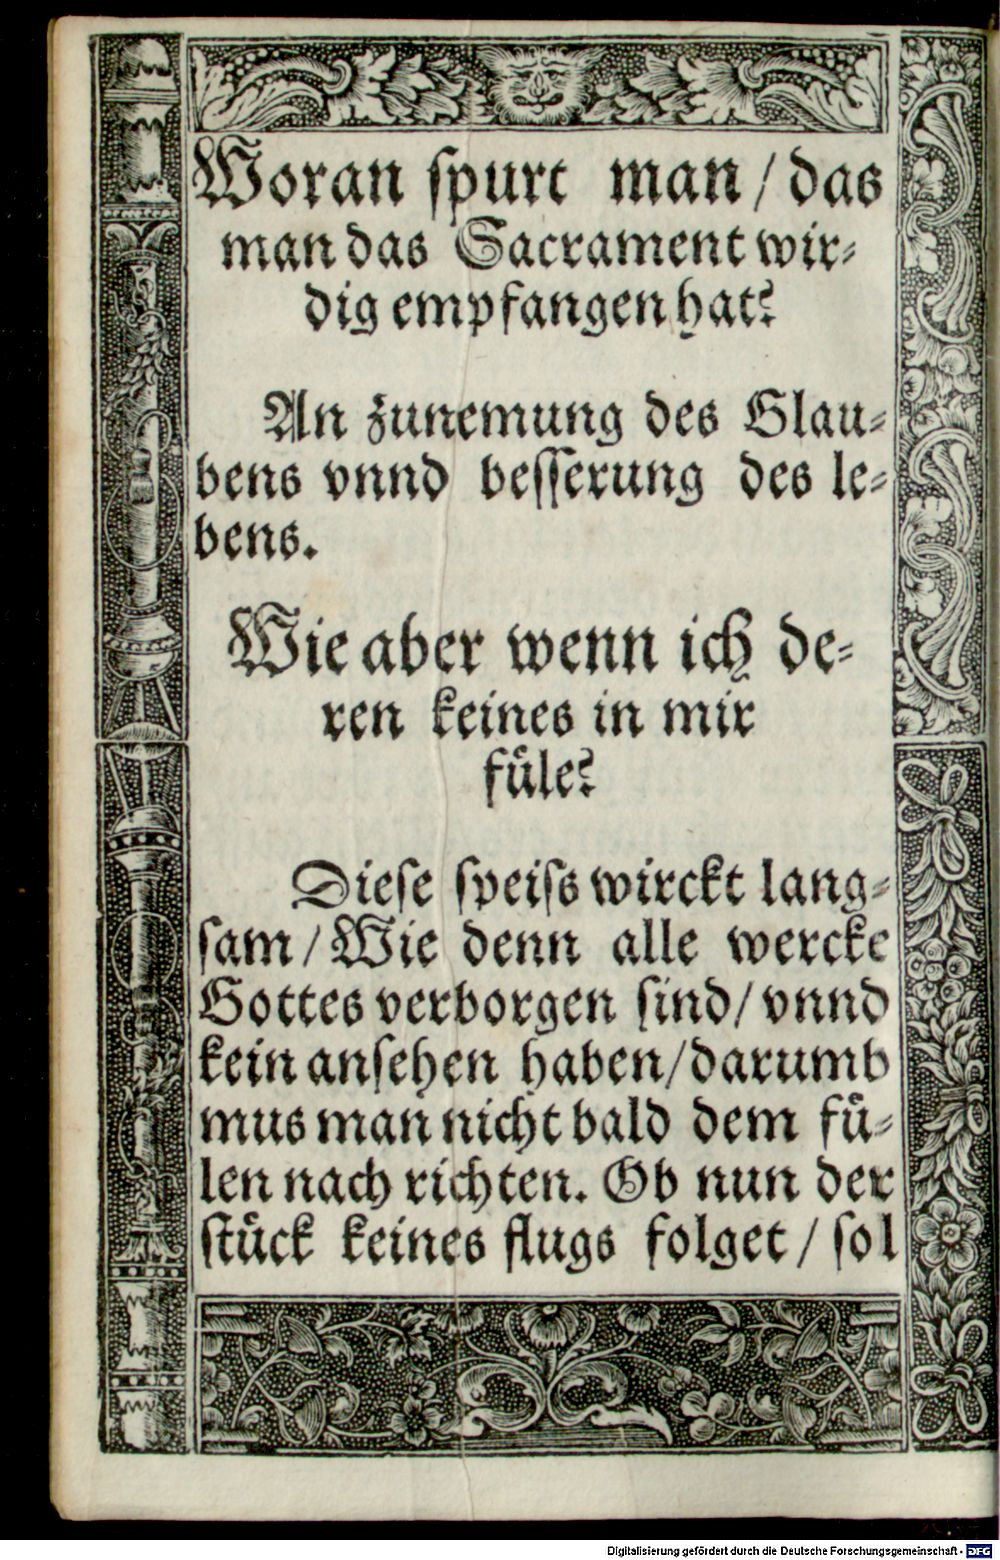 Woran spurt man / das
man das Sacrament wir⸗
dig empfangen hat?
An zunemung des Glau⸗
bens vnnd besserung des le⸗
bens.
Wie aber wenn ich de⸗
ren keines in mir
fůle?
Diese speiss wirckt lang⸗
sam / Wie denn alle wercke
Gottes verborgen sind / vnnd
kein ansehen haben / darumb
mus man nicht bald dem fů⸗
len nach richten. Ob nun der
stůck keines flugs folget / sol
Digitalisierung gefördert durch die Deutsche Forschungsgemeinschaft - DFG